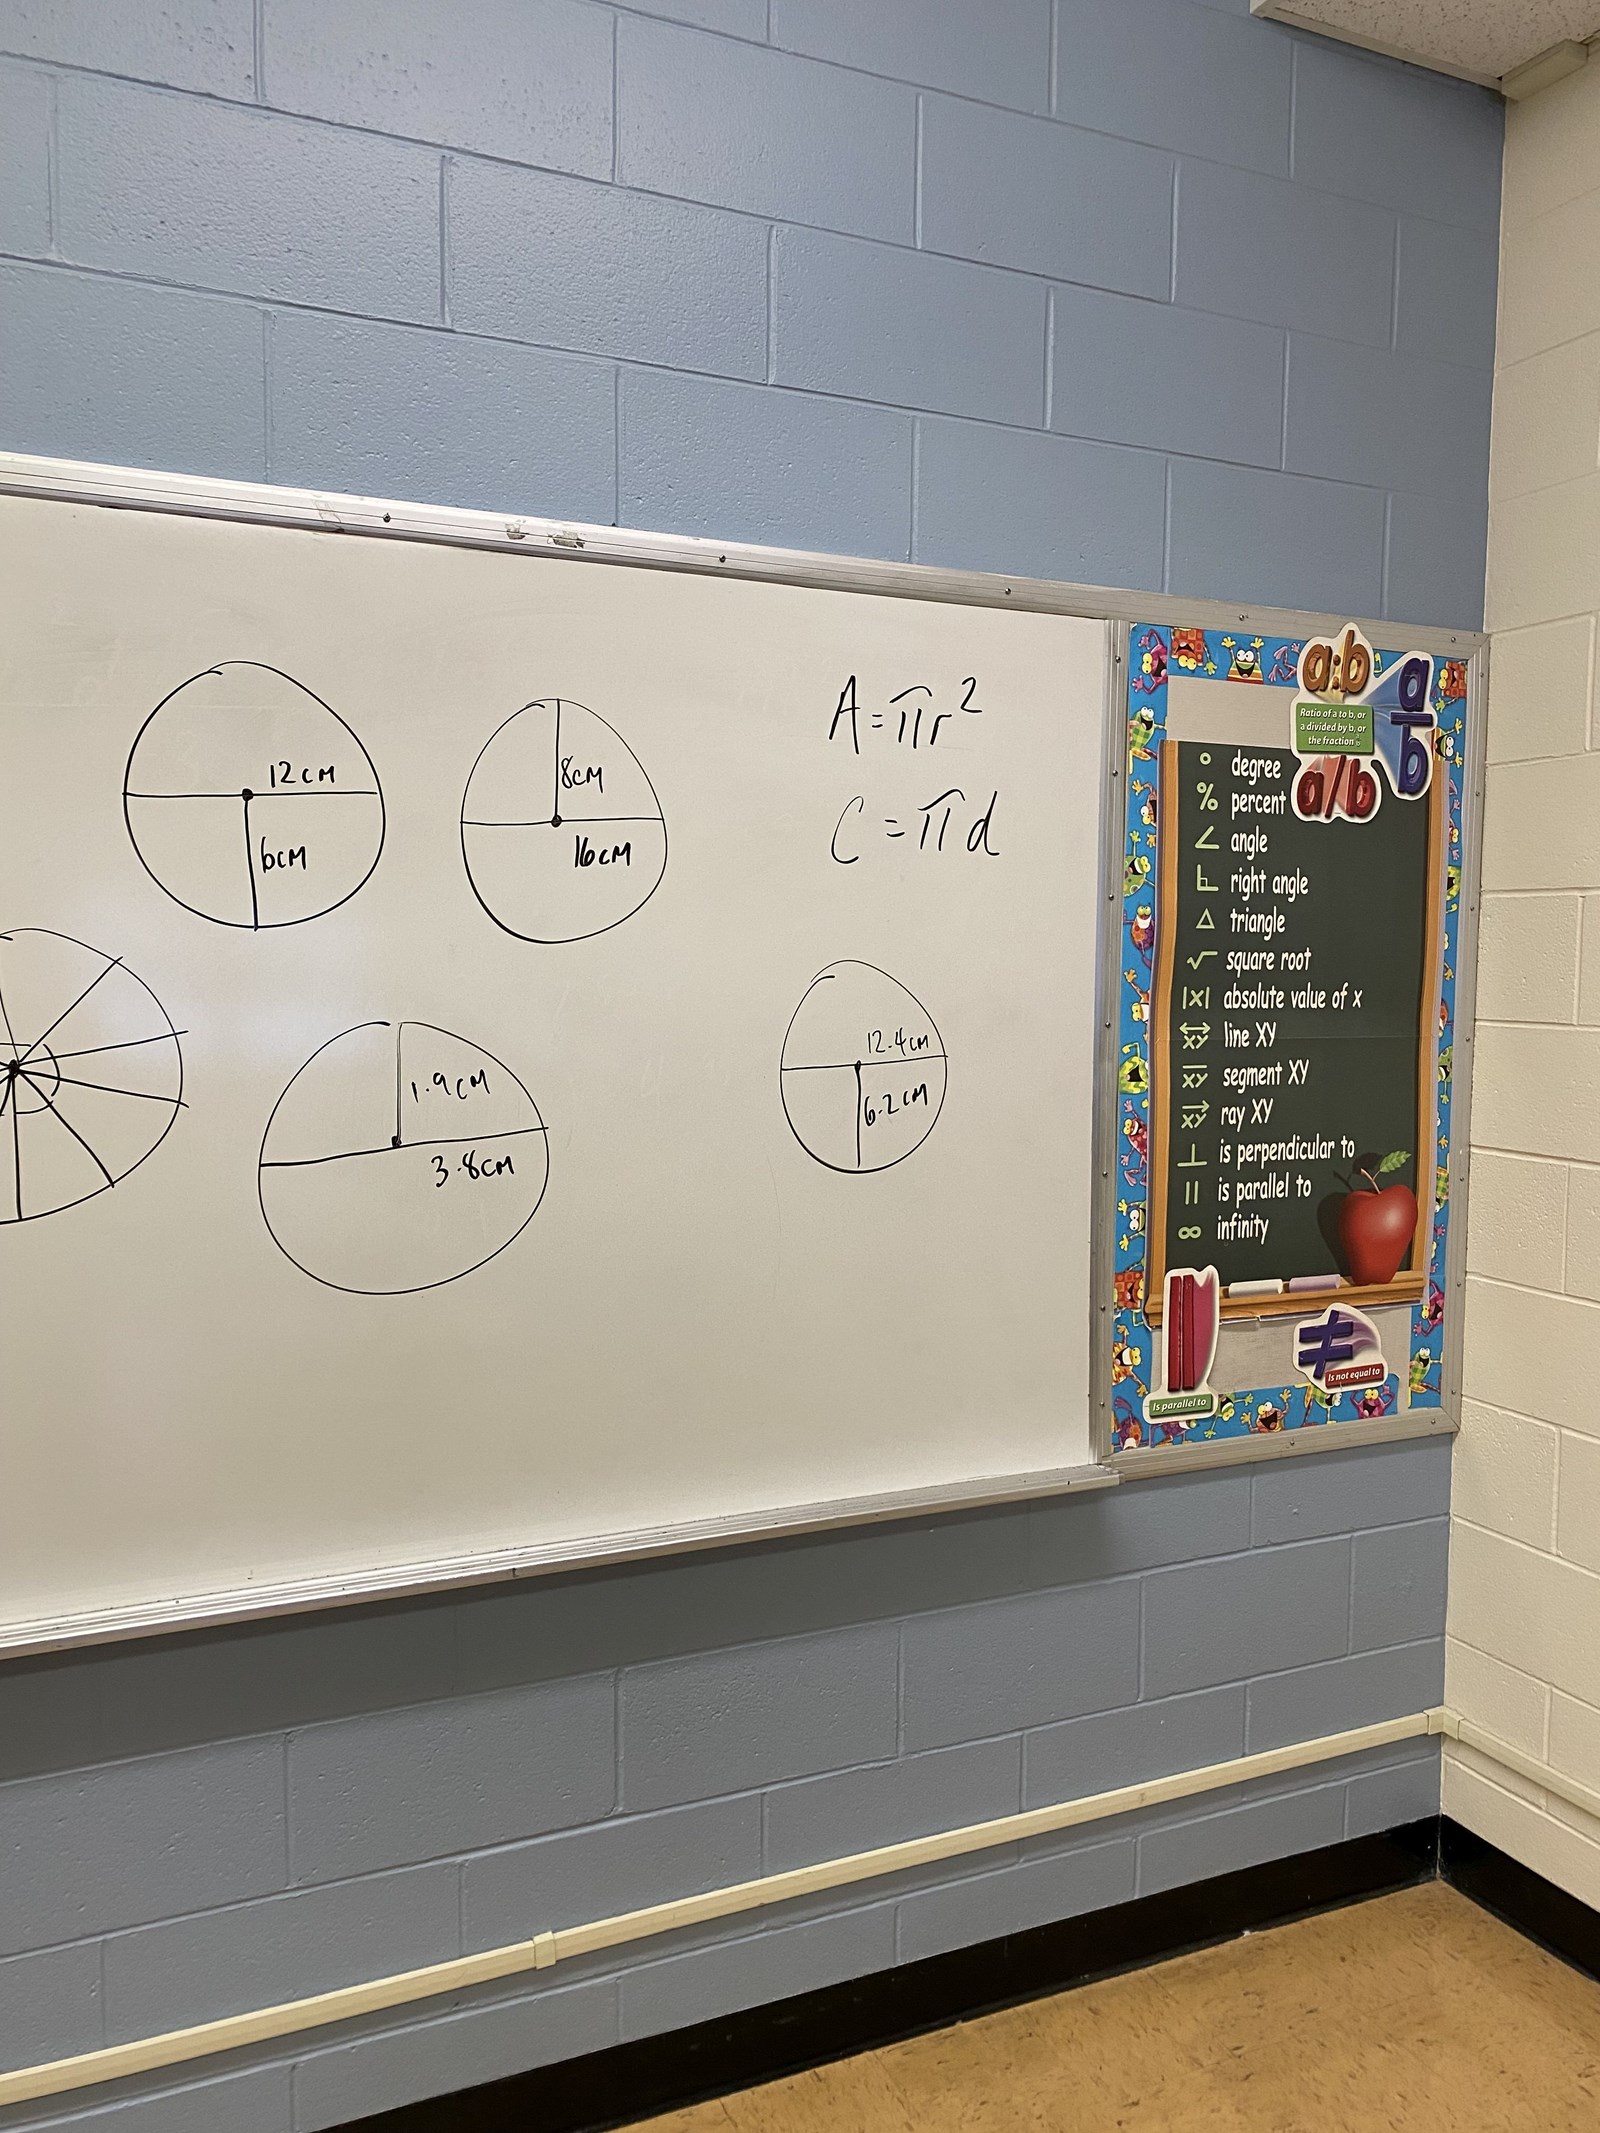 12cm
6cm
8cm
16cm
A=πr²
C=πd
1.9cm
3.8cm
12.4cm
6.2cm
a:b
a
b
Ratio of a to b, or
a divided by b, or
the fraction
a/b
° degree
% percent
∠ angle
right angle
△ triangle
√ square root
|x| absolute value of x
XY line XY
XY segment XY
XY ray XY
⊥ is perpendicular to
|| is parallel to
∞ infinity
Is parallel to
≠
Is not equal to